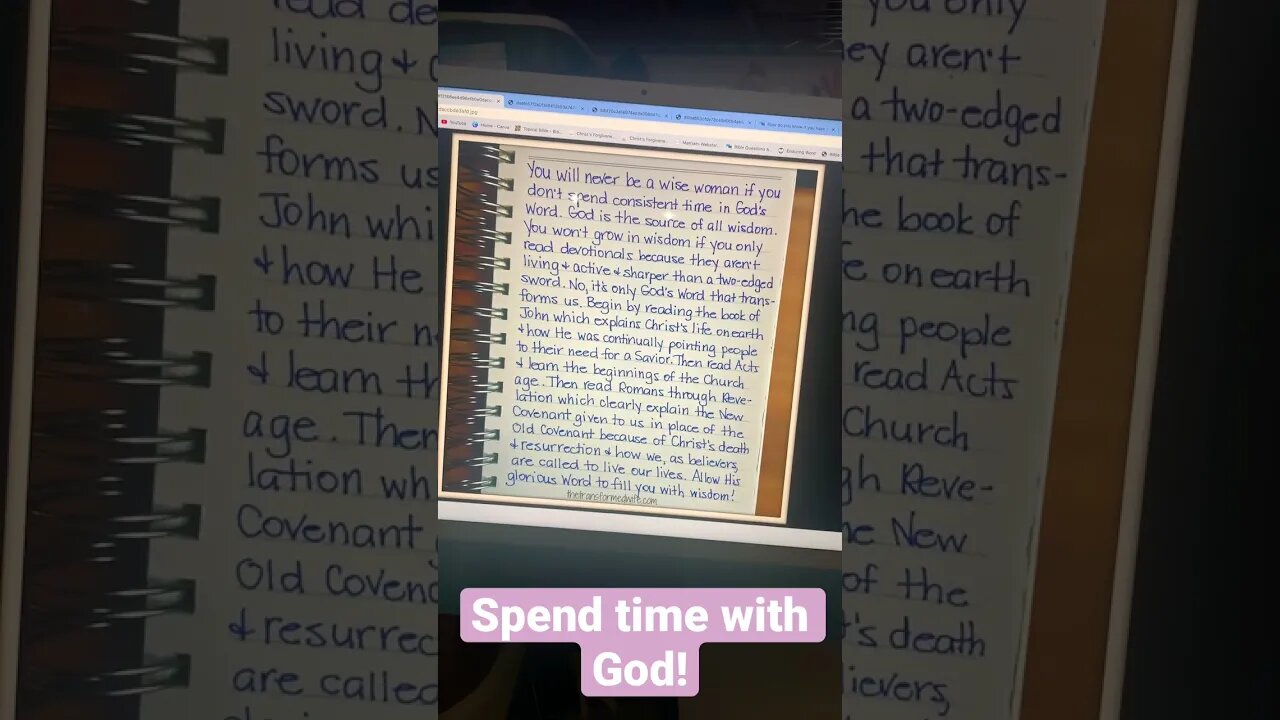 YouTube
Home - Canva
Topical Bible - Bio...
Christ's Forgivene...
Christ's Forgivene...
Merriam Webster...
Bible Questions A...
Enduring Word
You will never be a wise woman if you
don't spend consistent time in God's
Word. God is the source of all wisdom.
You won't grow in wisdom if you only
read devotionals because they aren't
living & active & sharper than a two-edged
sword. No, it's only God's Word that trans-
forms us. Begin by reading the book of
John which explains Christ's life on earth
& how He was continually pointing people
to their need for a Savior. Then read Acts
& learn the beginnings of the Church
age. Then read Romans through Reve-
lation which clearly explain the New
Covenant given to us in place of the
Old Covenant because of Christ's death
& resurrection & how we, as believers,
are called to live our lives. Allow His
glorious Word to fill you with wisdom!
thetransformedwife.com
Spend time with
God!